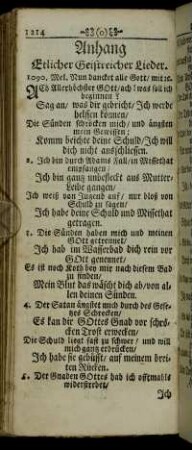 1214 (o)
Anhang
Etlicher Geistreicher Lieder.
1090. Mel. Nun dancket alle Gott/ mit ic.
Ach Allerhöchster GOtt/ ach! was soll ich
beginnen?
Sag an/ was dir gebricht/ Ich werde
helffen können/
Die Sünden schröcken mich/ und ängsten
mein Gewissen;
Komm beichte deine Schuld/ Ich will
dich nicht ausschliessen.
2. Ich bin durch Adams Fall/ in Missethat
empfangen;
Ich bin ganz unbefleckt aus Mutter-
Leibe gangen/
Ich weiß von Jugend auf/ nur bloß von
Schuld zu sagen/
Ich habe deine Schuld und Missethat
getragen.
3. Die Sünden haben mich und meinen
GOtt getrennet/
Ich hab im Wasserbad dich rein vor
GOtt genennet/
Es ist noch Koth bey mir nach diesem Bad
zu finden/
Mein Blut das wäscht dich ab/ von al-
len deinen Sünden.
4. Der Satan ängstet mich durch des Gese-
tzes Schrecken/
Es kan dir GOttes Gnad vor schrö-
cken Trost erwecken/
Die Schuld liegt fast zu schwer/ und will
mich ganz erdrücken/
Ich habe sie gebüsst/ auf meinem breit-
ten Rücken.
5. Der Gnaden GOttes hab ich offtmahls
widerstrebet/
Ich